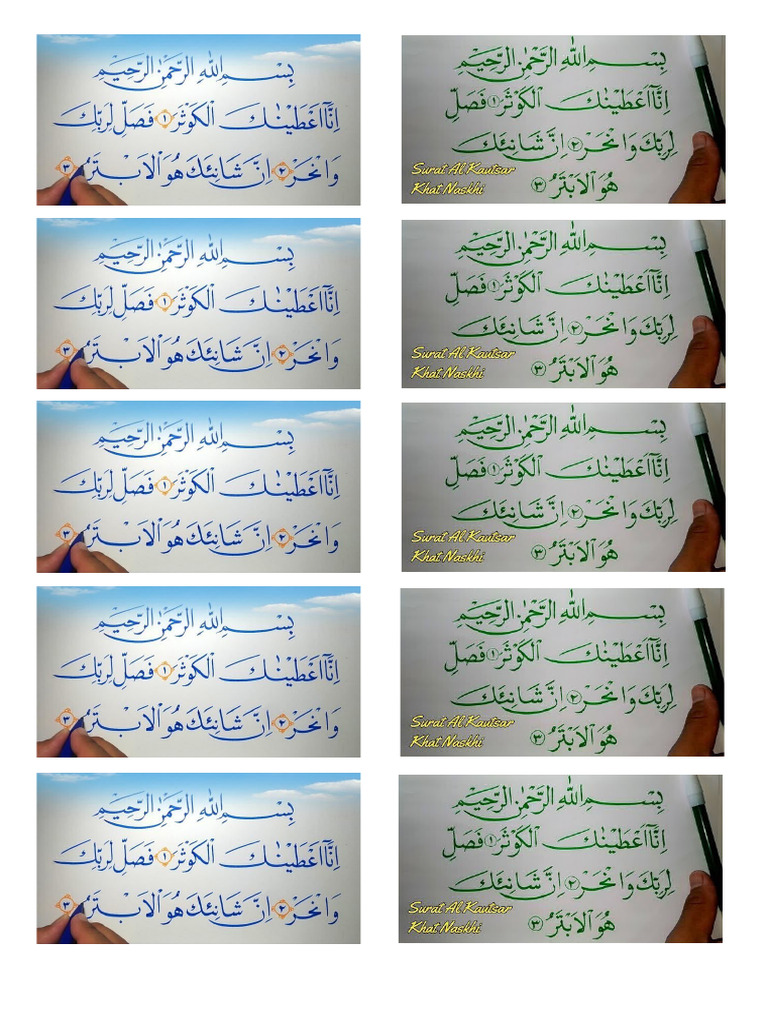 بِسْمِ اللهِ الرَّحْمٰنِ الرَّحِيْمِ
اِنَّآ اَعْطَيْنٰكَ الْكَوْثَرَ ١ فَصَلِّ لِرَبِّكَ
وَانْحَرْ ٢ اِنَّ شَانِئَكَ هُوَ الْاَبْتَرُ ٣
بِسْمِ اللهِ الرَّحْمٰنِ الرَّحِيْمِ
اِنَّآ اَعْطَيْنٰكَ الْكَوْثَرَ ١ فَصَلِّ
لِرَبِّكَ وَانْحَرْ ٢ اِنَّ شَانِئَكَ
هُوَ الْاَبْتَرُ ٣
Surat Al Kautsar
Khat Naskhi
بِسْمِ اللهِ الرَّحْمٰنِ الرَّحِيْمِ
اِنَّآ اَعْطَيْنٰكَ الْكَوْثَرَ ١ فَصَلِّ لِرَبِّكَ
وَانْحَرْ ٢ اِنَّ شَانِئَكَ هُوَ الْاَبْتَرُ ٣
بِسْمِ اللهِ الرَّحْمٰنِ الرَّحِيْمِ
اِنَّآ اَعْطَيْنٰكَ الْكَوْثَرَ ١ فَصَلِّ
لِرَبِّكَ وَانْحَرْ ٢ اِنَّ شَانِئَكَ
هُوَ الْاَبْتَرُ ٣
Surat Al Kautsar
Khat Naskhi
بِسْمِ اللهِ الرَّحْمٰنِ الرَّحِيْمِ
اِنَّآ اَعْطَيْنٰكَ الْكَوْثَرَ ١ فَصَلِّ لِرَبِّكَ
وَانْحَرْ ٢ اِنَّ شَانِئَكَ هُوَ الْاَبْتَرُ ٣
بِسْمِ اللهِ الرَّحْمٰنِ الرَّحِيْمِ
اِنَّآ اَعْطَيْنٰكَ الْكَوْثَرَ ١ فَصَلِّ
لِرَبِّكَ وَانْحَرْ ٢ اِنَّ شَانِئَكَ
هُوَ الْاَبْتَرُ ٣
Surat Al Kautsar
Khat Naskhi
بِسْمِ اللهِ الرَّحْمٰنِ الرَّحِيْمِ
اِنَّآ اَعْطَيْنٰكَ الْكَوْثَرَ ١ فَصَلِّ لِرَبِّكَ
وَانْحَرْ ٢ اِنَّ شَانِئَكَ هُوَ الْاَبْتَرُ ٣
بِسْمِ اللهِ الرَّحْمٰنِ الرَّحِيْمِ
اِنَّآ اَعْطَيْنٰكَ الْكَوْثَرَ ١ فَصَلِّ
لِرَبِّكَ وَانْحَرْ ٢ اِنَّ شَانِئَكَ
هُوَ الْاَبْتَرُ ٣
Surat Al Kautsar
Khat Naskhi
بِسْمِ اللهِ الرَّحْمٰنِ الرَّحِيْمِ
اِنَّآ اَعْطَيْنٰكَ الْكَوْثَرَ ١ فَصَلِّ لِرَبِّكَ
وَانْحَرْ ٢ اِنَّ شَانِئَكَ هُوَ الْاَبْتَرُ ٣
بِسْمِ اللهِ الرَّحْمٰنِ الرَّحِيْمِ
اِنَّآ اَعْطَيْنٰكَ الْكَوْثَرَ ١ فَصَلِّ
لِرَبِّكَ وَانْحَرْ ٢ اِنَّ شَانِئَكَ
هُوَ الْاَبْتَرُ ٣
Surat Al Kautsar
Khat Naskhi